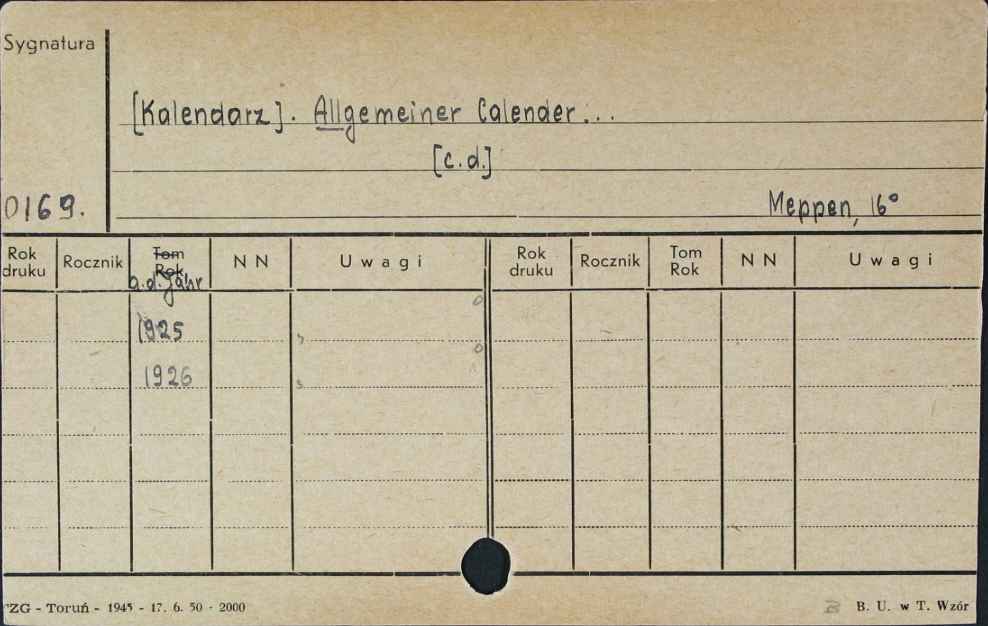 Sygnatura
[Kalendarz]. Allgemeiner Calender...
[c.d.]
0169.
Meppen, 16°
Rok druku Rocznik Tom Rok NN Uwagi Rok druku Rocznik Tom Rok NN Uwagi
a.d. Jahr
1925
1926
CZG - Toruń - 1945 - 17. 6. 50 - 2000
B. U. w T. Wzór